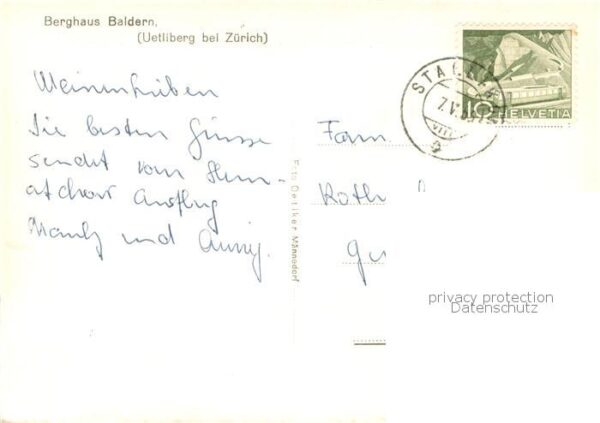 Berghaus Baldern,
(Uetliberg bei Zürich)
Meinen Lieben
Die besten Grüsse
sendet vom
Ausflug
und
Foto Oetiker Männedorf
STALL
7.V.
VIII
10 HELVETIA
Fam
Roth
Gu
privacy protection
Datenschutz